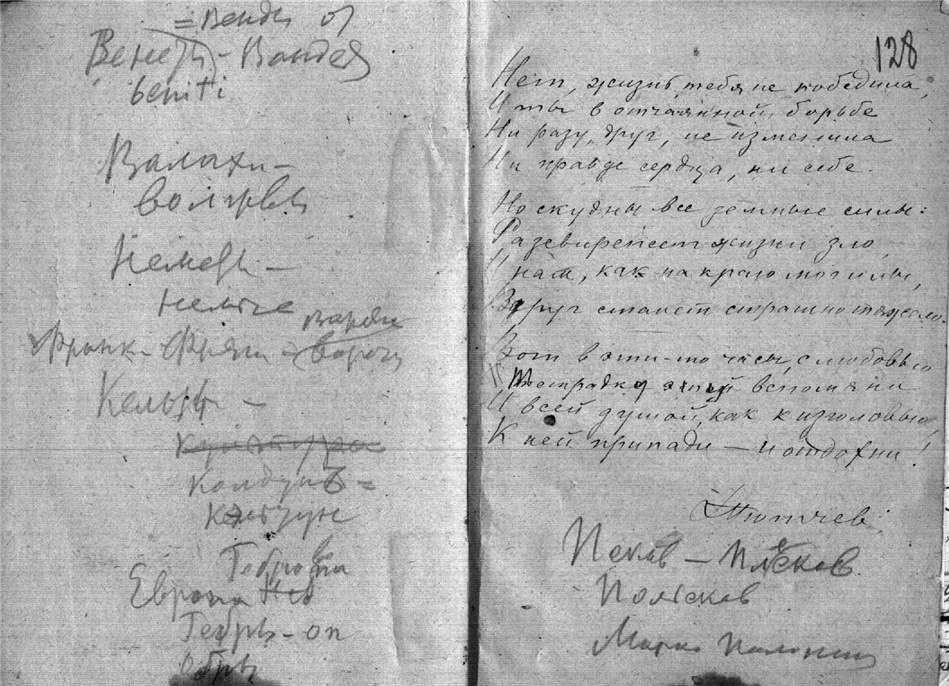 = Венды
Венеды - Вандея
beniti
Валахи -
волжвы
Немецъ -
Франки - Фряги -
Кельты -
Колдунъ =
Европа
Гебръ - оп
Обры
128
Нет, жизнь тебя не победила,
И ты в отчаянной борьбе
Ни разу, друг, не изменила
Ни правде сердца, ни себе.
Но скудны все земные силы:
Разсвирепеет жизни зло
И нам, как на краю могилы,
Вдруг станет страшно тяжело.
Вот в эти-то часы, с любовью
вспомяни
И всей душой, как к изголовью,
К ней припади – и отдохни!
Тютчев.
Псковъ – Плѣсков
Полѣсков
Марко